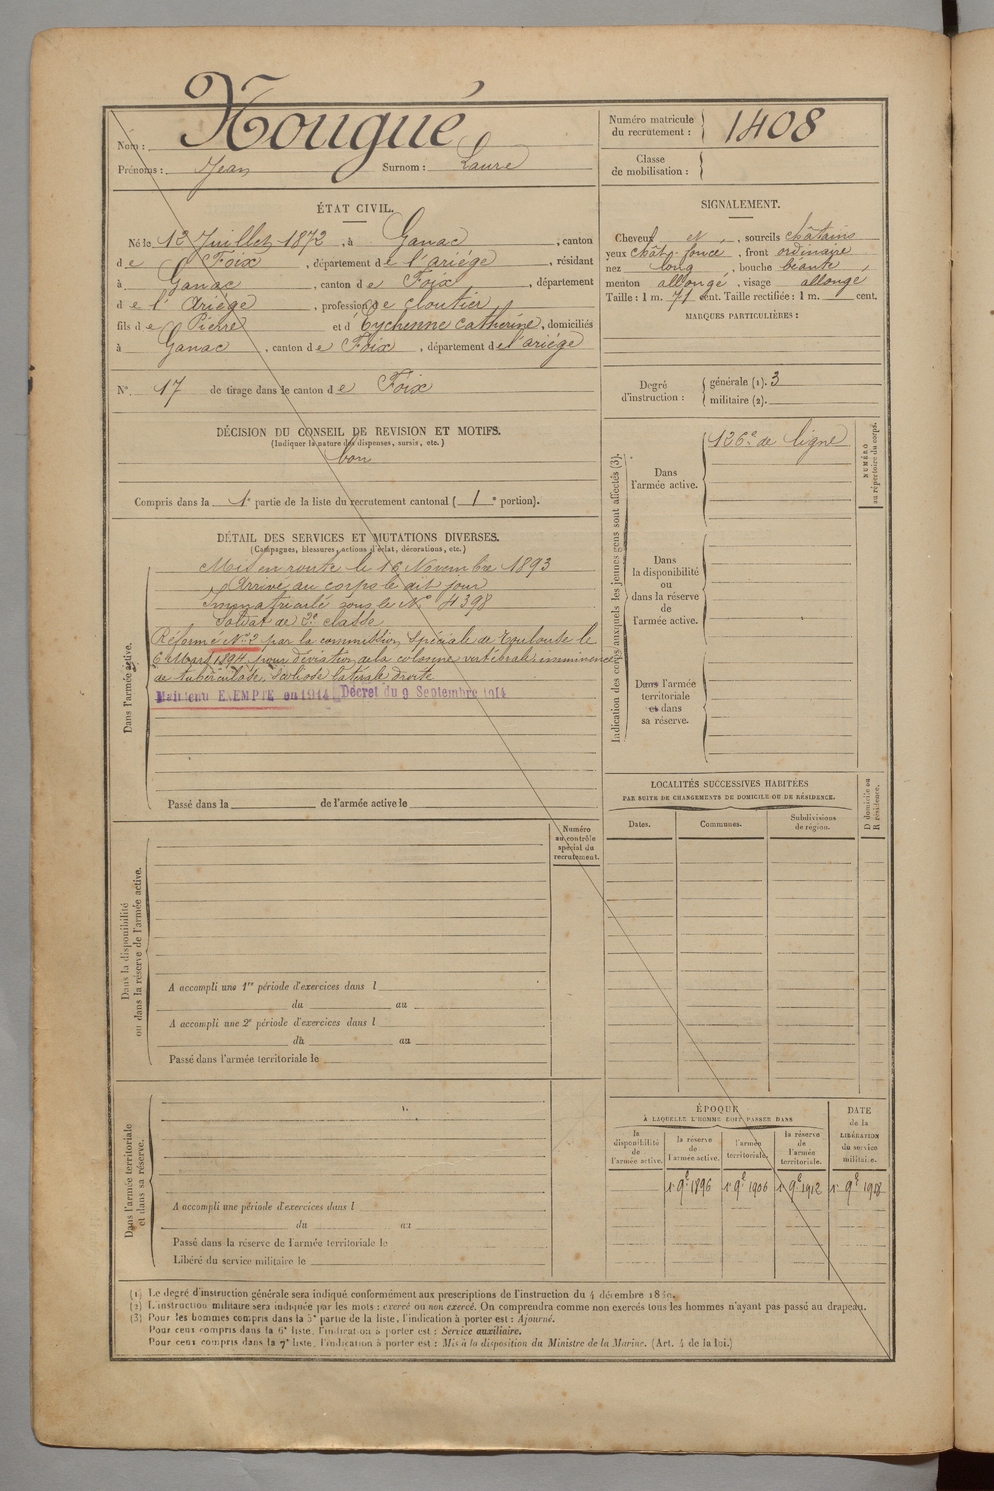 Nom : Nougué
Prénoms : Jean Surnom : Laure
Numéro matricule du recrutement : 1408
Classe de mobilisation :
ÉTAT CIVIL.
Né le 12 Juillet 1872, à Ganac, canton
de Foix, département de l'ariège, résidant
à Ganac, canton de Foix, département
de l'Ariège, profession de cloutier
fils de Pierre et d'Eychenne Catherine, domiciliés
à Ganac, canton de Foix, département de l'ariége
N° 17 de tirage dans le canton de Foix
SIGNALEMENT.
Cheveux et, sourcils châtains
yeux chât. foncé, front ordinaire
nez long, bouche béante,
menton allongé, visage allongé
Taille : 1 m. 71 cent. Taille rectifiée : 1 m. cent.
MARQUES PARTICULIÈRES :
Degré d'instruction : générale (1). 3
militaire (2).
DÉCISION DU CONSEIL DE REVISION ET MOTIFS.
(Indiquer la nature des dispenses, sursis, etc.)
bon
Compris dans la 1e partie de la liste du recrutement cantonal ( 1 e portion).
DÉTAIL DES SERVICES ET MUTATIONS DIVERSES.
(Campagnes, blessures, actions d'éclat, décorations, etc.)
Dans l'armée active.
Mis en route le 16 Novembre 1893
Arrivé au corps le dit jour
Immatriculé sous le N° 4398
Soldat de 2e classe
Réformé N° 2 par la commission Spéciale de Toulouse le
6 Mars 1894 pour déviation de la colonne vertébrale imminence
de tuberculose, Scoliose latérale droite
Maintenu EXEMPTE en 1914 Décret du 9 Septembre 1914
Passé dans la de l'armée active le
Indication des corps auxquels les jeunes gens sont affectés (3).
Dans l'armée active.
126e de ligne
NUMÉRO au répertoire du corps.
Dans la disponibilité ou dans la réserve de l'armée active.
Dans l'armée territoriale et dans sa réserve.
LOCALITÉS SUCCESSIVES HABITÉES
PAR SUITE DE CHANGEMENTS DE DOMICILE OU DE RÉSIDENCE.
Dates. Communes. Subdivisions de région.
D domicile ou R résidence.
Numéro au contrôle spécial du recrutement.
Dans la disponibilité ou dans la réserve de l'armée active.
A accompli une 1re période d'exercices dans l
du au
A accompli une 2e période d'exercices dans l
du au
Passé dans l'armée territoriale le
Dans l'armée territoriale et dans sa réserve.
A accompli une période d'exercices dans l
du au
Passé dans la réserve de l'armée territoriale le
Libéré du service militaire le
ÉPOQUE
À LAQUELLE L'HOMME DOIT PASSER DANS
la disponibilité de l'armée active.
la réserve de l'armée active.
l'armée territoriale.
la réserve de l'armée territoriale.
DATE de la LIBÉRATION du service militaire.
1er 9e 1896 1er 9e 1906 1er 9e 1912 1er 9e 1918
(1) Le degré d'instruction générale sera indiqué conformément aux prescriptions de l'instruction du 4 décembre
(2) L'instruction militaire sera indiquée par les mots : exercé ou non exercé. On comprendra comme non exercés tous les hommes n'ayant pas passé au drapeau.
(3) Pour les hommes compris dans la 5e partie de la liste, l'indication à porter est : Ajourné.
Pour ceux compris dans la 6e liste, l'indication à porter est : Service auxiliaire.
Pour ceux compris dans la 7e liste, l'indication à porter est : Mis à la disposition du Ministre de la Marine. (Art. 4 de la loi.)